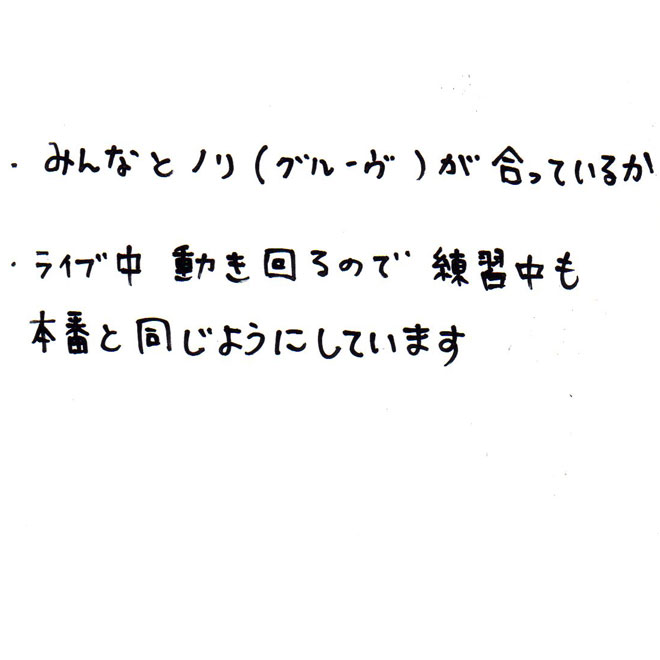 ・みんなとノリ(グルーヴ)が合っているか
・ライブ中 動き回るので 練習中も
本番と同じようにしています